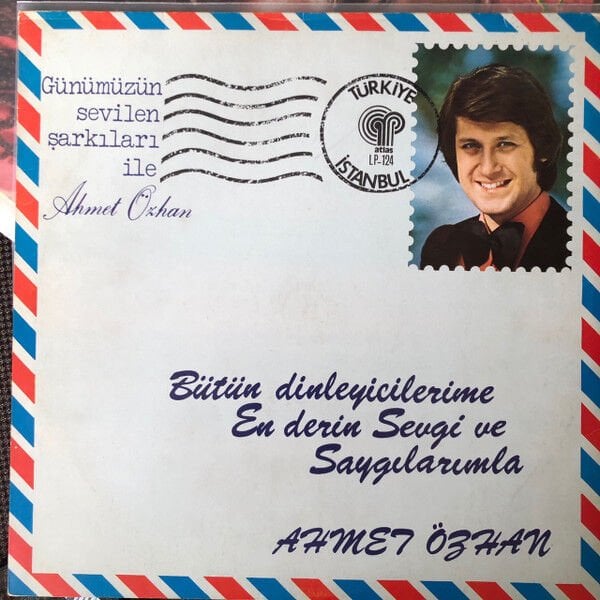 Günümüzün
sevilen
şarkıları
ile
Ahmet Özhan
TÜRKİYE
atlas
LP-124
İSTANBUL
Bütün dinleyicilerime
En derin Sevgi ve
Saygılarımla
AHMET ÖZHAN